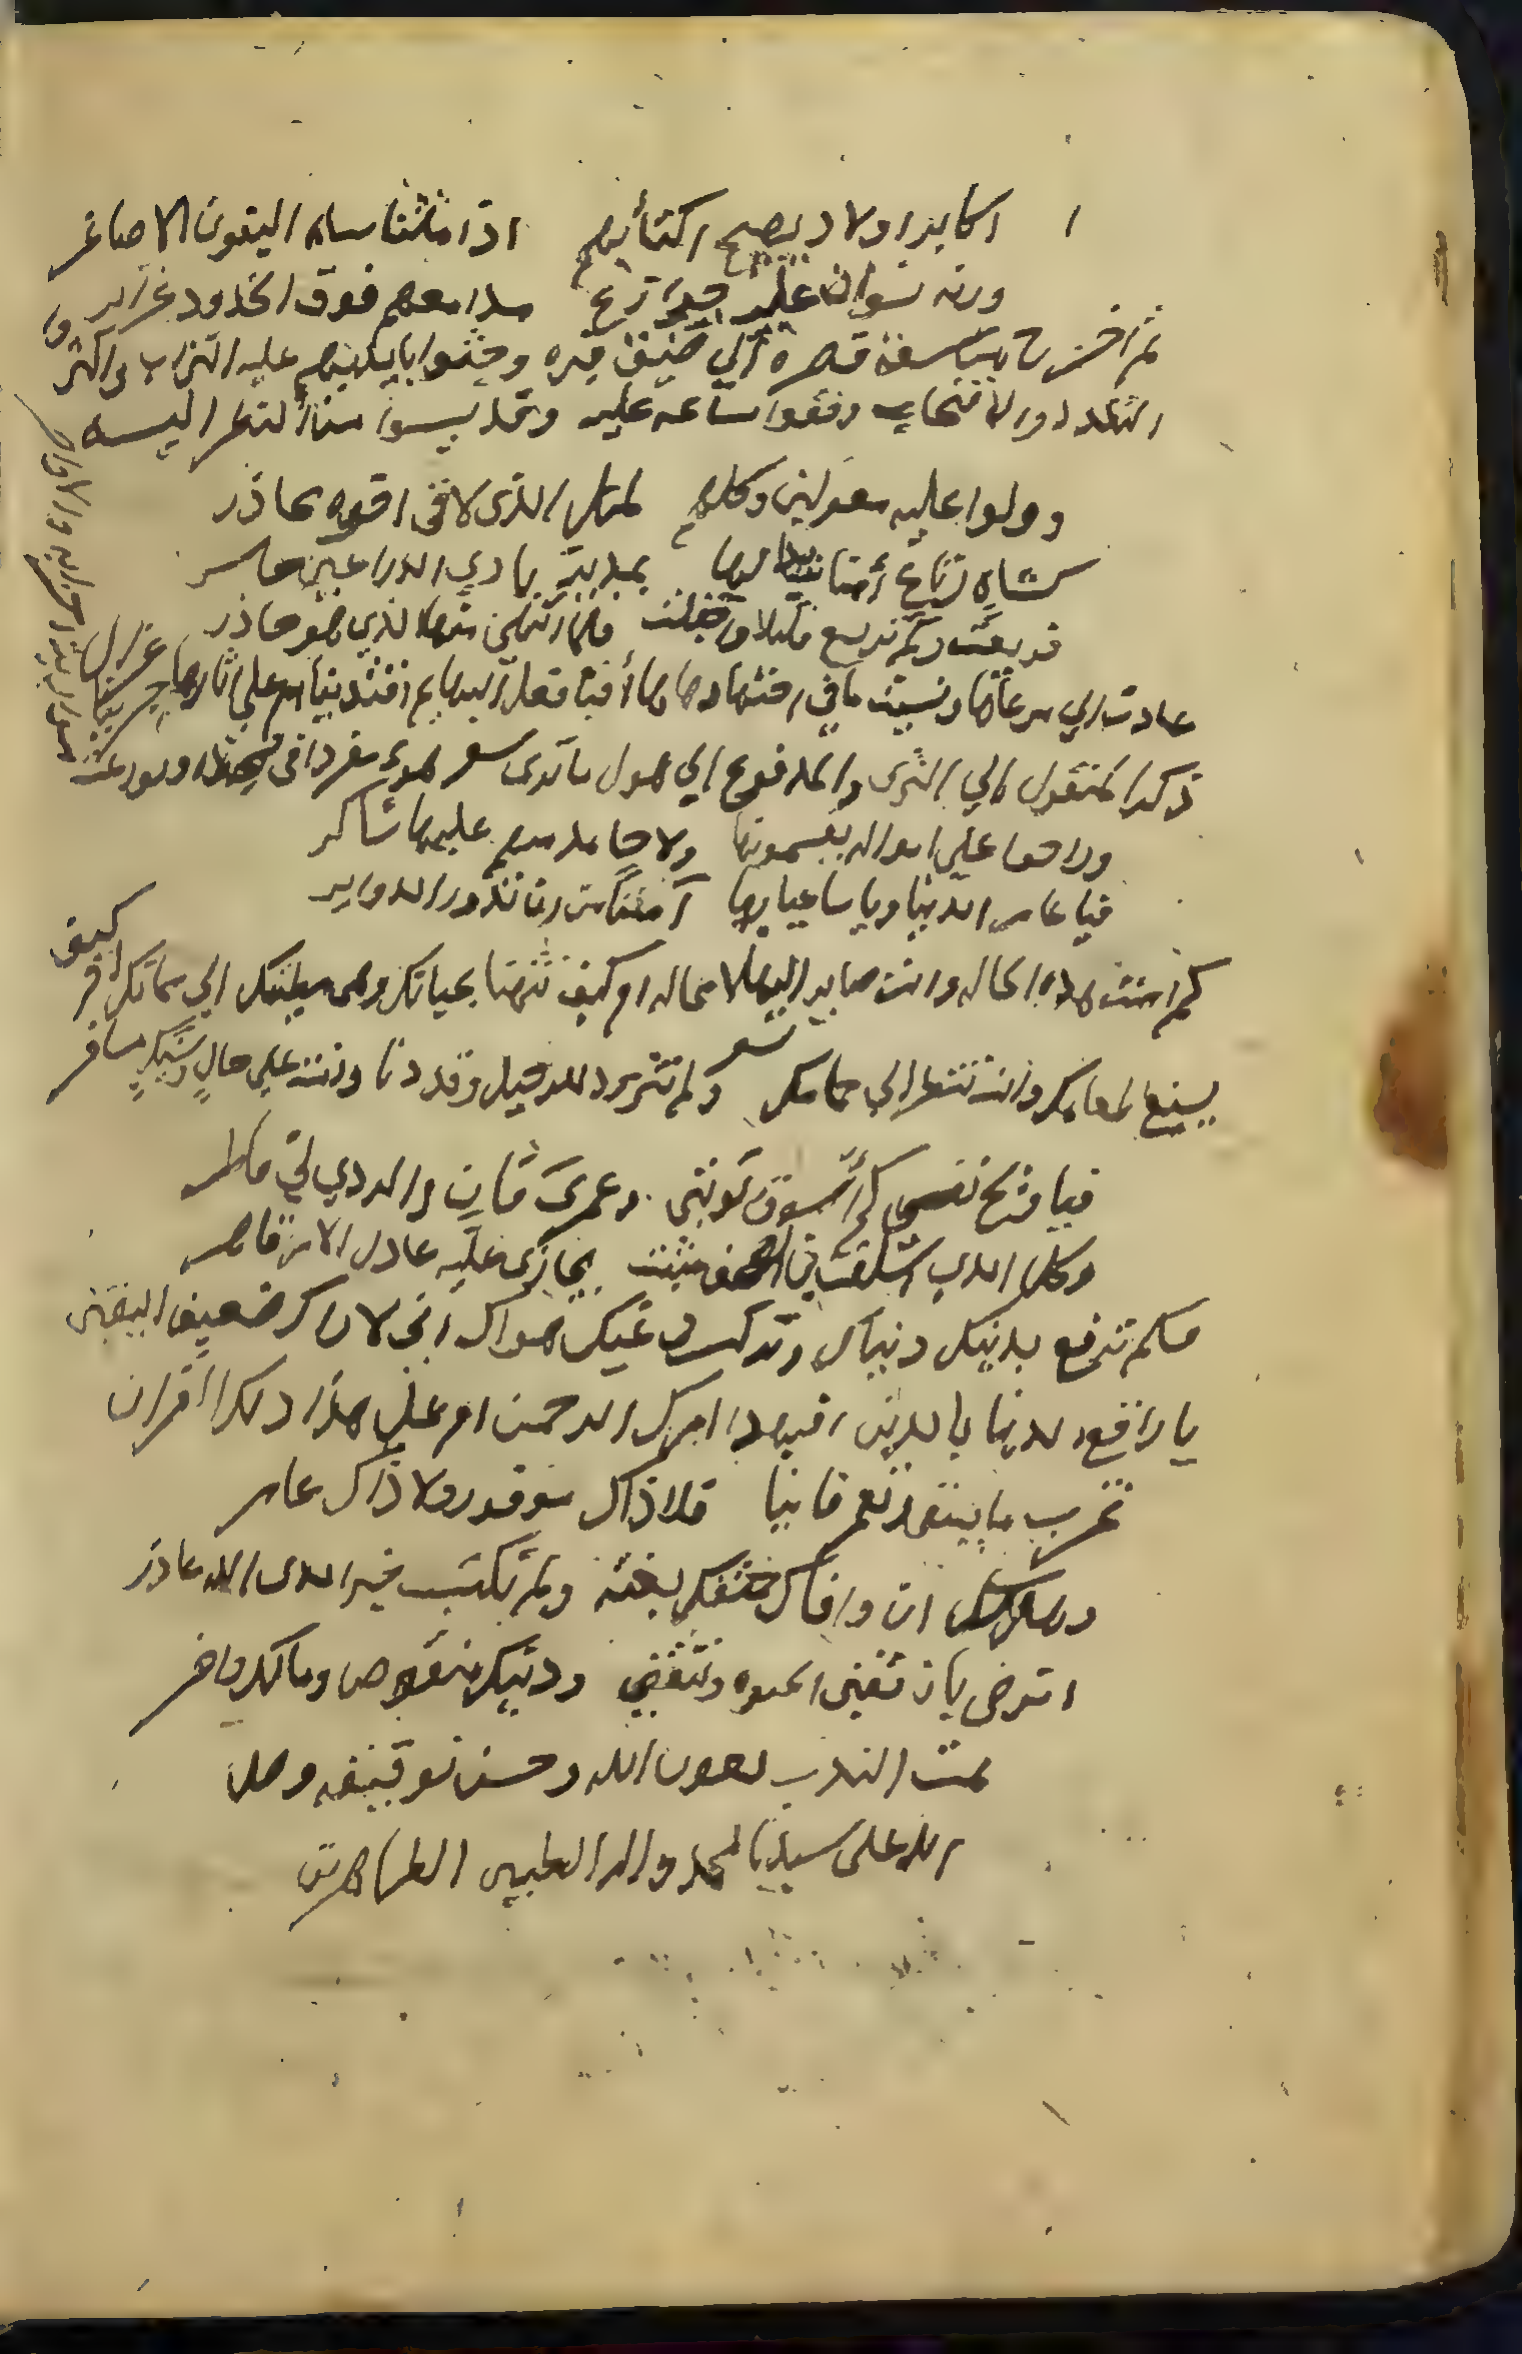 اكابر اولاد يهيج اكتئابهم اذا ما تناساه البنون الاصاغر
ورنة نسوان عليه جوازع مدامعهم فوق الخدود غزاير
ثم اخرج من سعة قصره الي ضيق قبره وحثوا بايديهم عليه التراب واكثروا
التلدد والانتحاب وقفوا ساعه عليه وقد يسوا من النظر اليه
وولوا عليه معولين وكلهم لمثل الذى لاقى اخوه محاذر
كشاء رتاع آمنات بدا لها بمدية بادي الذراعين حاسر
فريعت ولم ترتع قليلا واجفلت فلما انتحى منها الذي هو حاذر
عادت الي مرعاها ونسيت ما في اختها دهاها أفبافعال البهايم اقتدينا ام علي اثارها جرينا عد الى
ذكر المنقول الي الثرى والمدفوع الي هول ما ترى
هوى مفردا في لحده وتوزعت مواريثه ارحامه والاواصر
وراحوا علي امواله يقسمونها ولا حامد منهم عليها شاكر
فيا عامر الدنيا ويا ساعيا لها ويا آمنا من ان تدور الدواير
كيف امنت هذه الحاله وانت صاير اليها لا محاله ام كيف تتهنا بحياتك وهى مطيتك الي مماتك ام كيف
تسيغ طعامك وانت تنتظر الي حمامك شعر
ولم تتزود للرحيل وقد دنا وانت علي حالٍ وشيكٍ مسافر
فيا ويح نفسي كم أسوف توبتي وعمري فانٍ والردي لي ناظر
وكل الذي اسلفت في الصحف مثبت يجازى عليه عادل الامر قاهر
فكم ترقع بدينك دنياك وتركب في غيك هواك اني لاراك ضعيف اليقين
يا راقع الدنيا بالدين افبهذا امرك الرحمن ام علي هذا دلك القران
تخرب ما يبقى وتعمر فانيا فلا ذاك موفور ولا ذاك عامر
وهل لك ان وافاك حتفك بغتة ولم تكتسب خيرا لدى الله عاذر
اترضى بان تفنى الحيوه وتنقضي ودينك منقوص ومالك وافر
تمت الندبه بعون الله وحسن توفيقه وصلى
الله على سيدنا محمد واله الطيبين الطاهرين